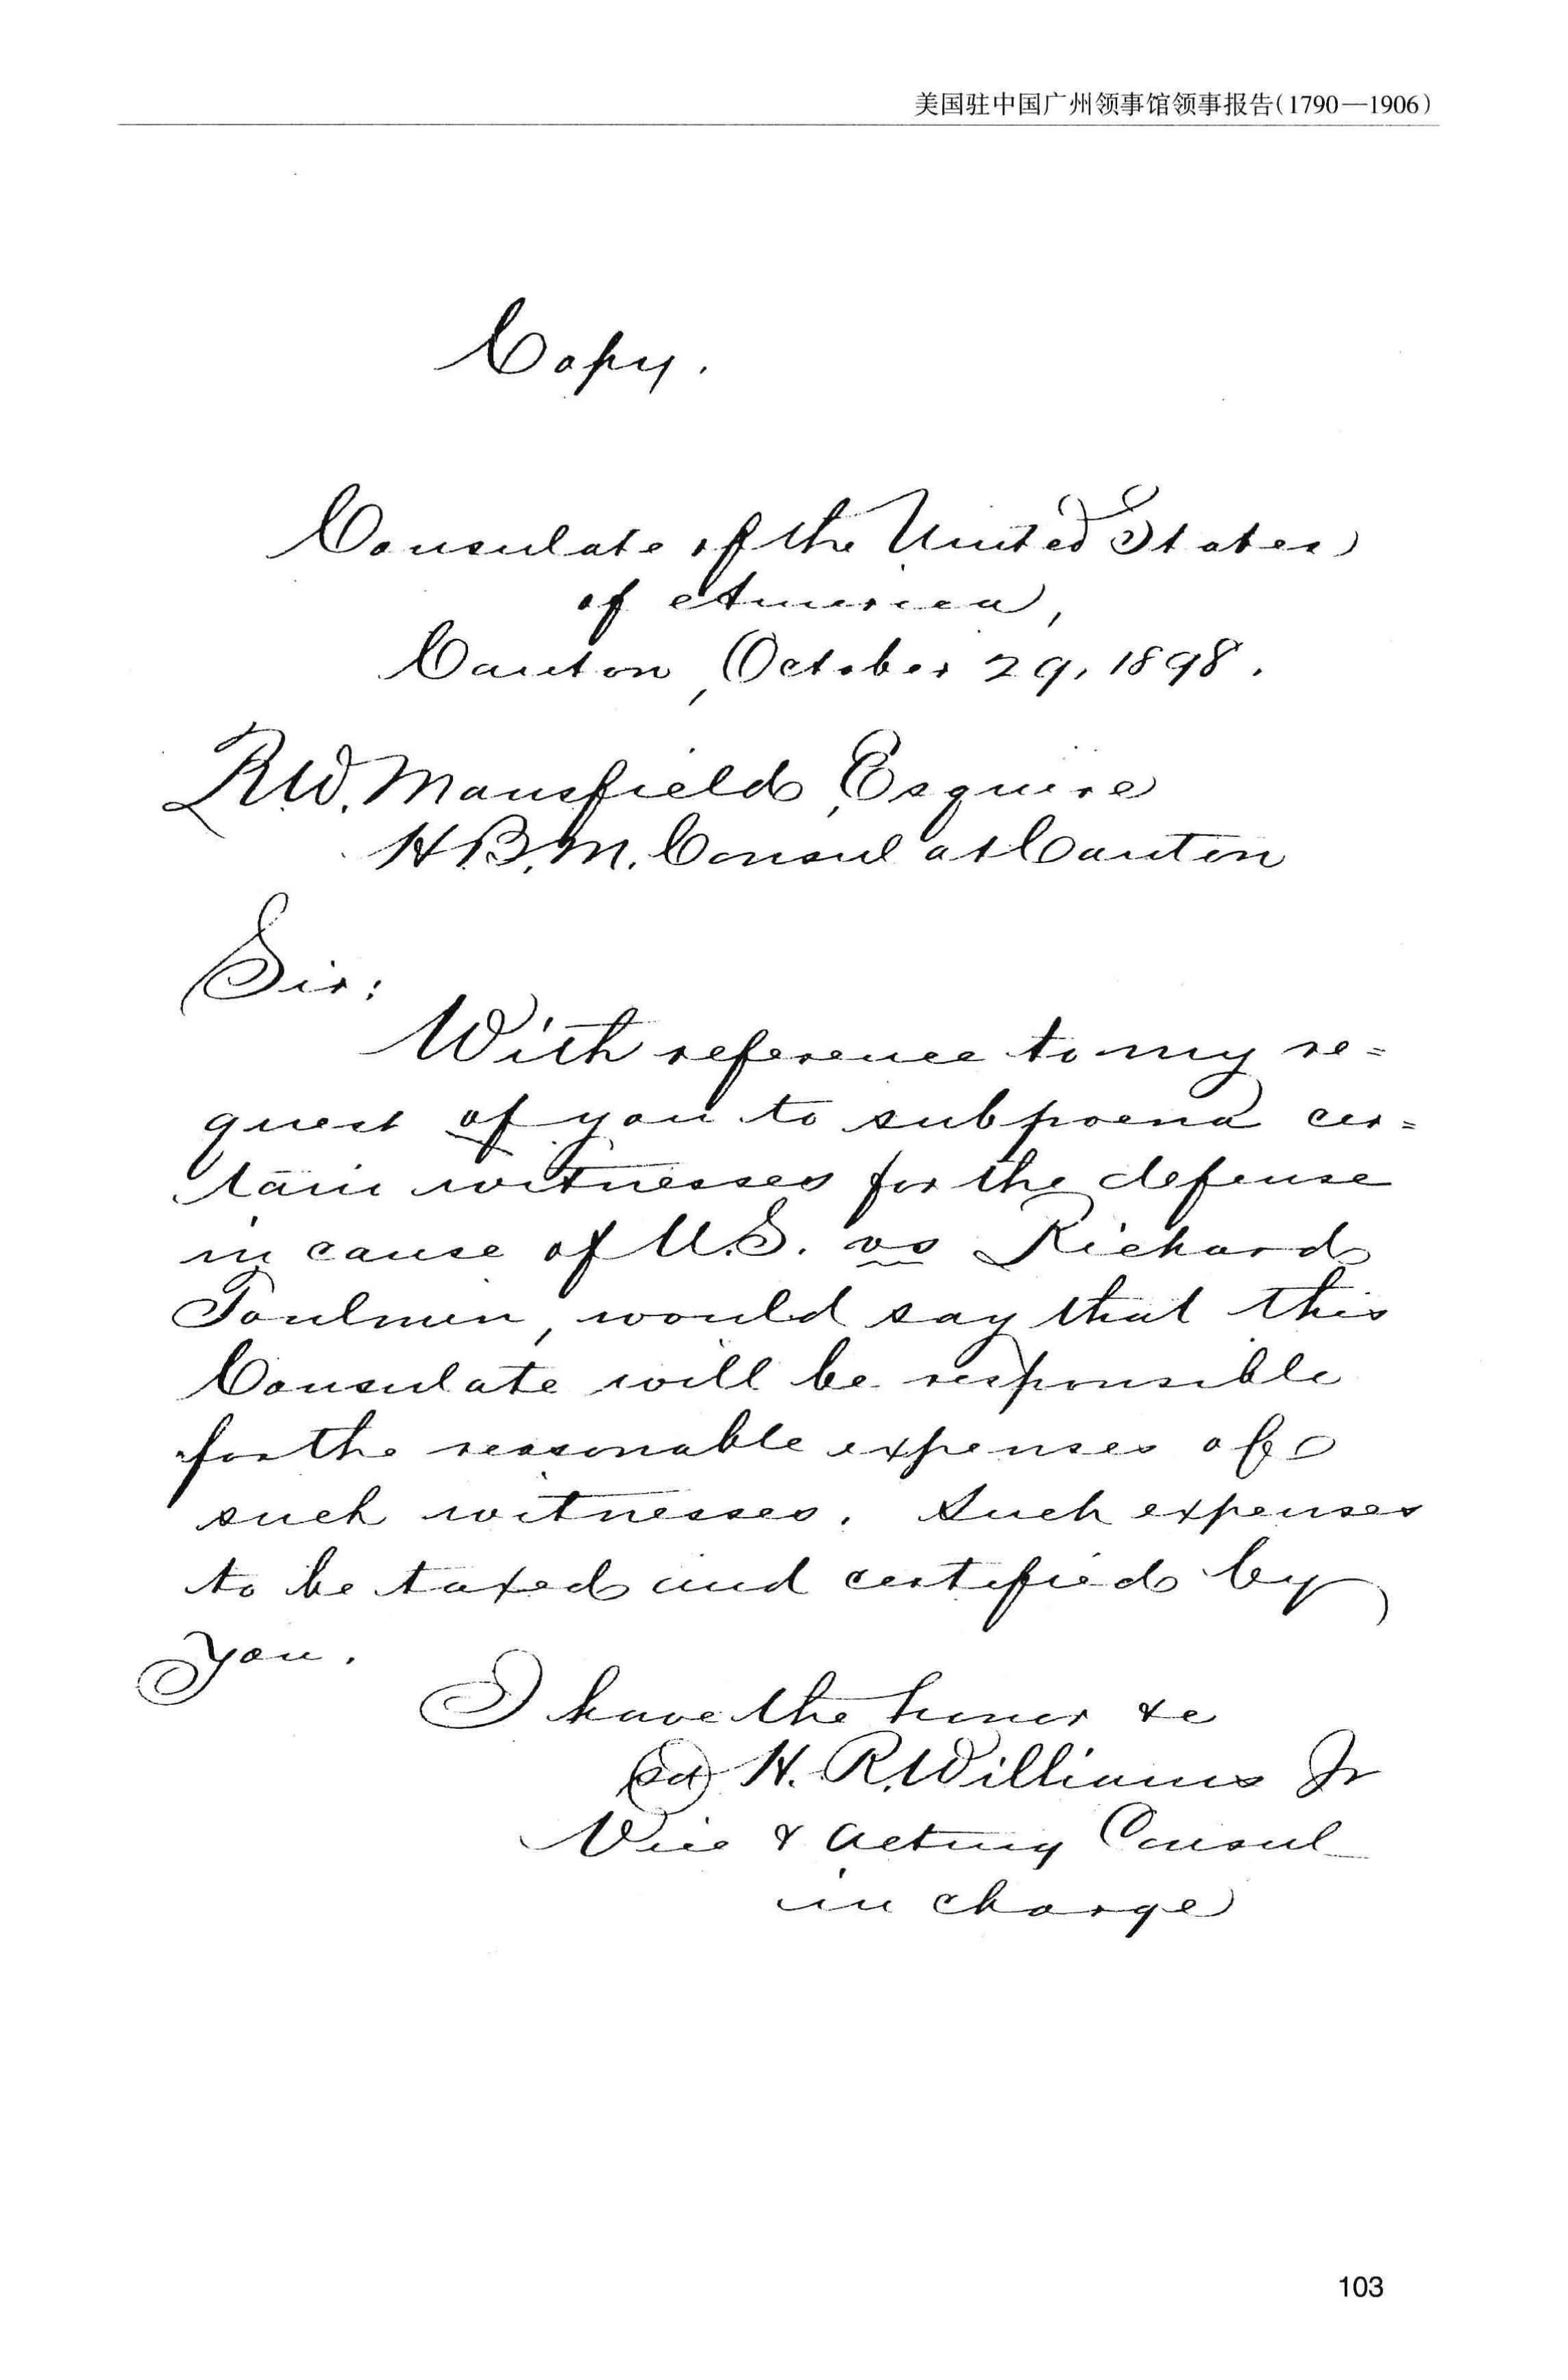 美国驻中国广州领事馆领事报告(1790—1906)
Copy.
Consulate of the United States
of America,
Canton, October 29, 1898.
R.W. Mansfield, Esquire
H.B.M. Consul at Canton
Sir:
With reference to my re=
quest of you to subpoena cer=
tain witnesses for the defense
in cause of U.S. vs Richard
Toulmin, would say that this
Consulate will be responsible
for the reasonable expenses of
such witnesses. Such expenses
to be taxed and certified by
you.
I have the honor &c
(sd) H. R. Williams Jr
Vice & Acting Consul
in charge
103